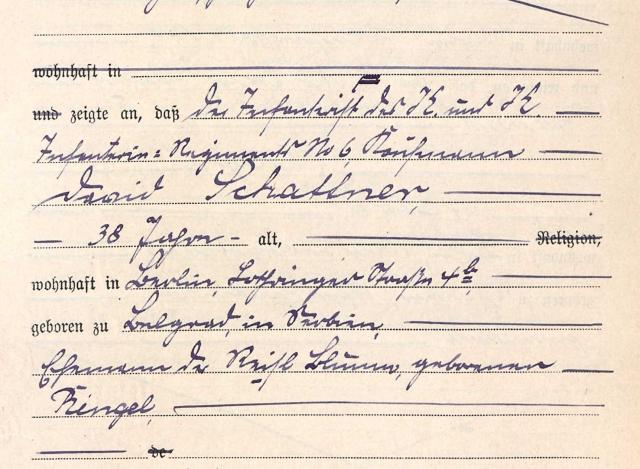 wohnhaft in
und zeigte an, daß der Infanterist des K. und K.
Infanterie-Regiments No 6, Kaufmann
David Schattner,
38 Jahre alt, Religion,
wohnhaft in Berlin, Lothringer Straße 4b,
geboren zu Belgrad in Serbien,
Ehemann der Reisl Blume, geborenen
Ringel,
de